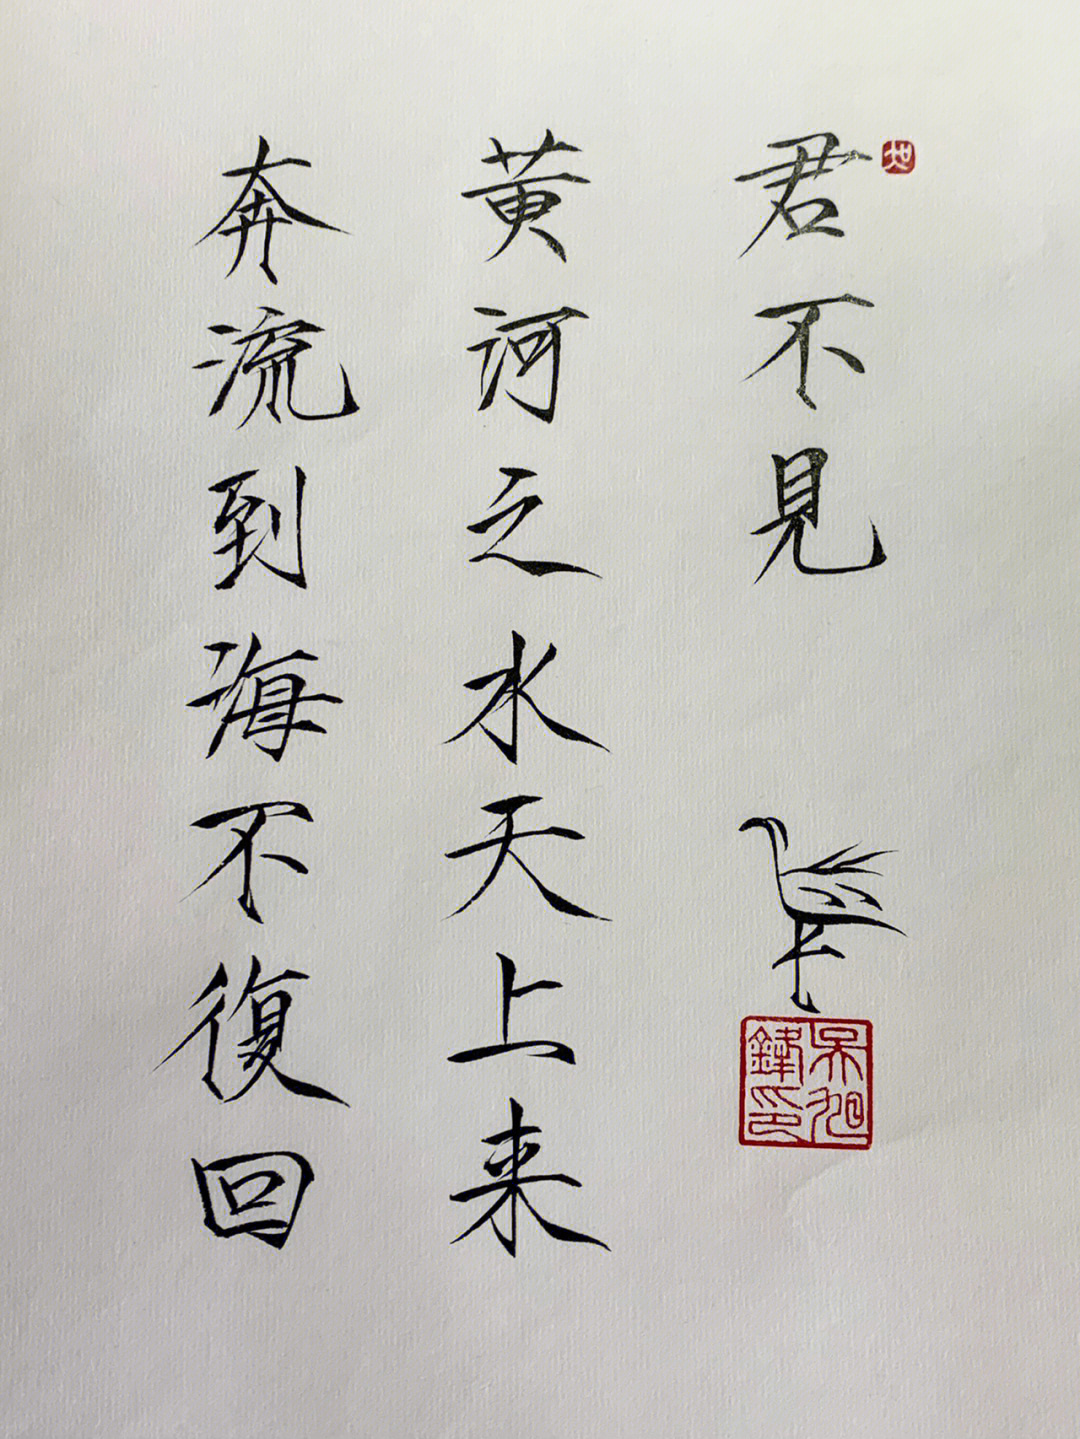 君不見
黄河之水天上来
奔流到海不復回
吴旭
鋒印